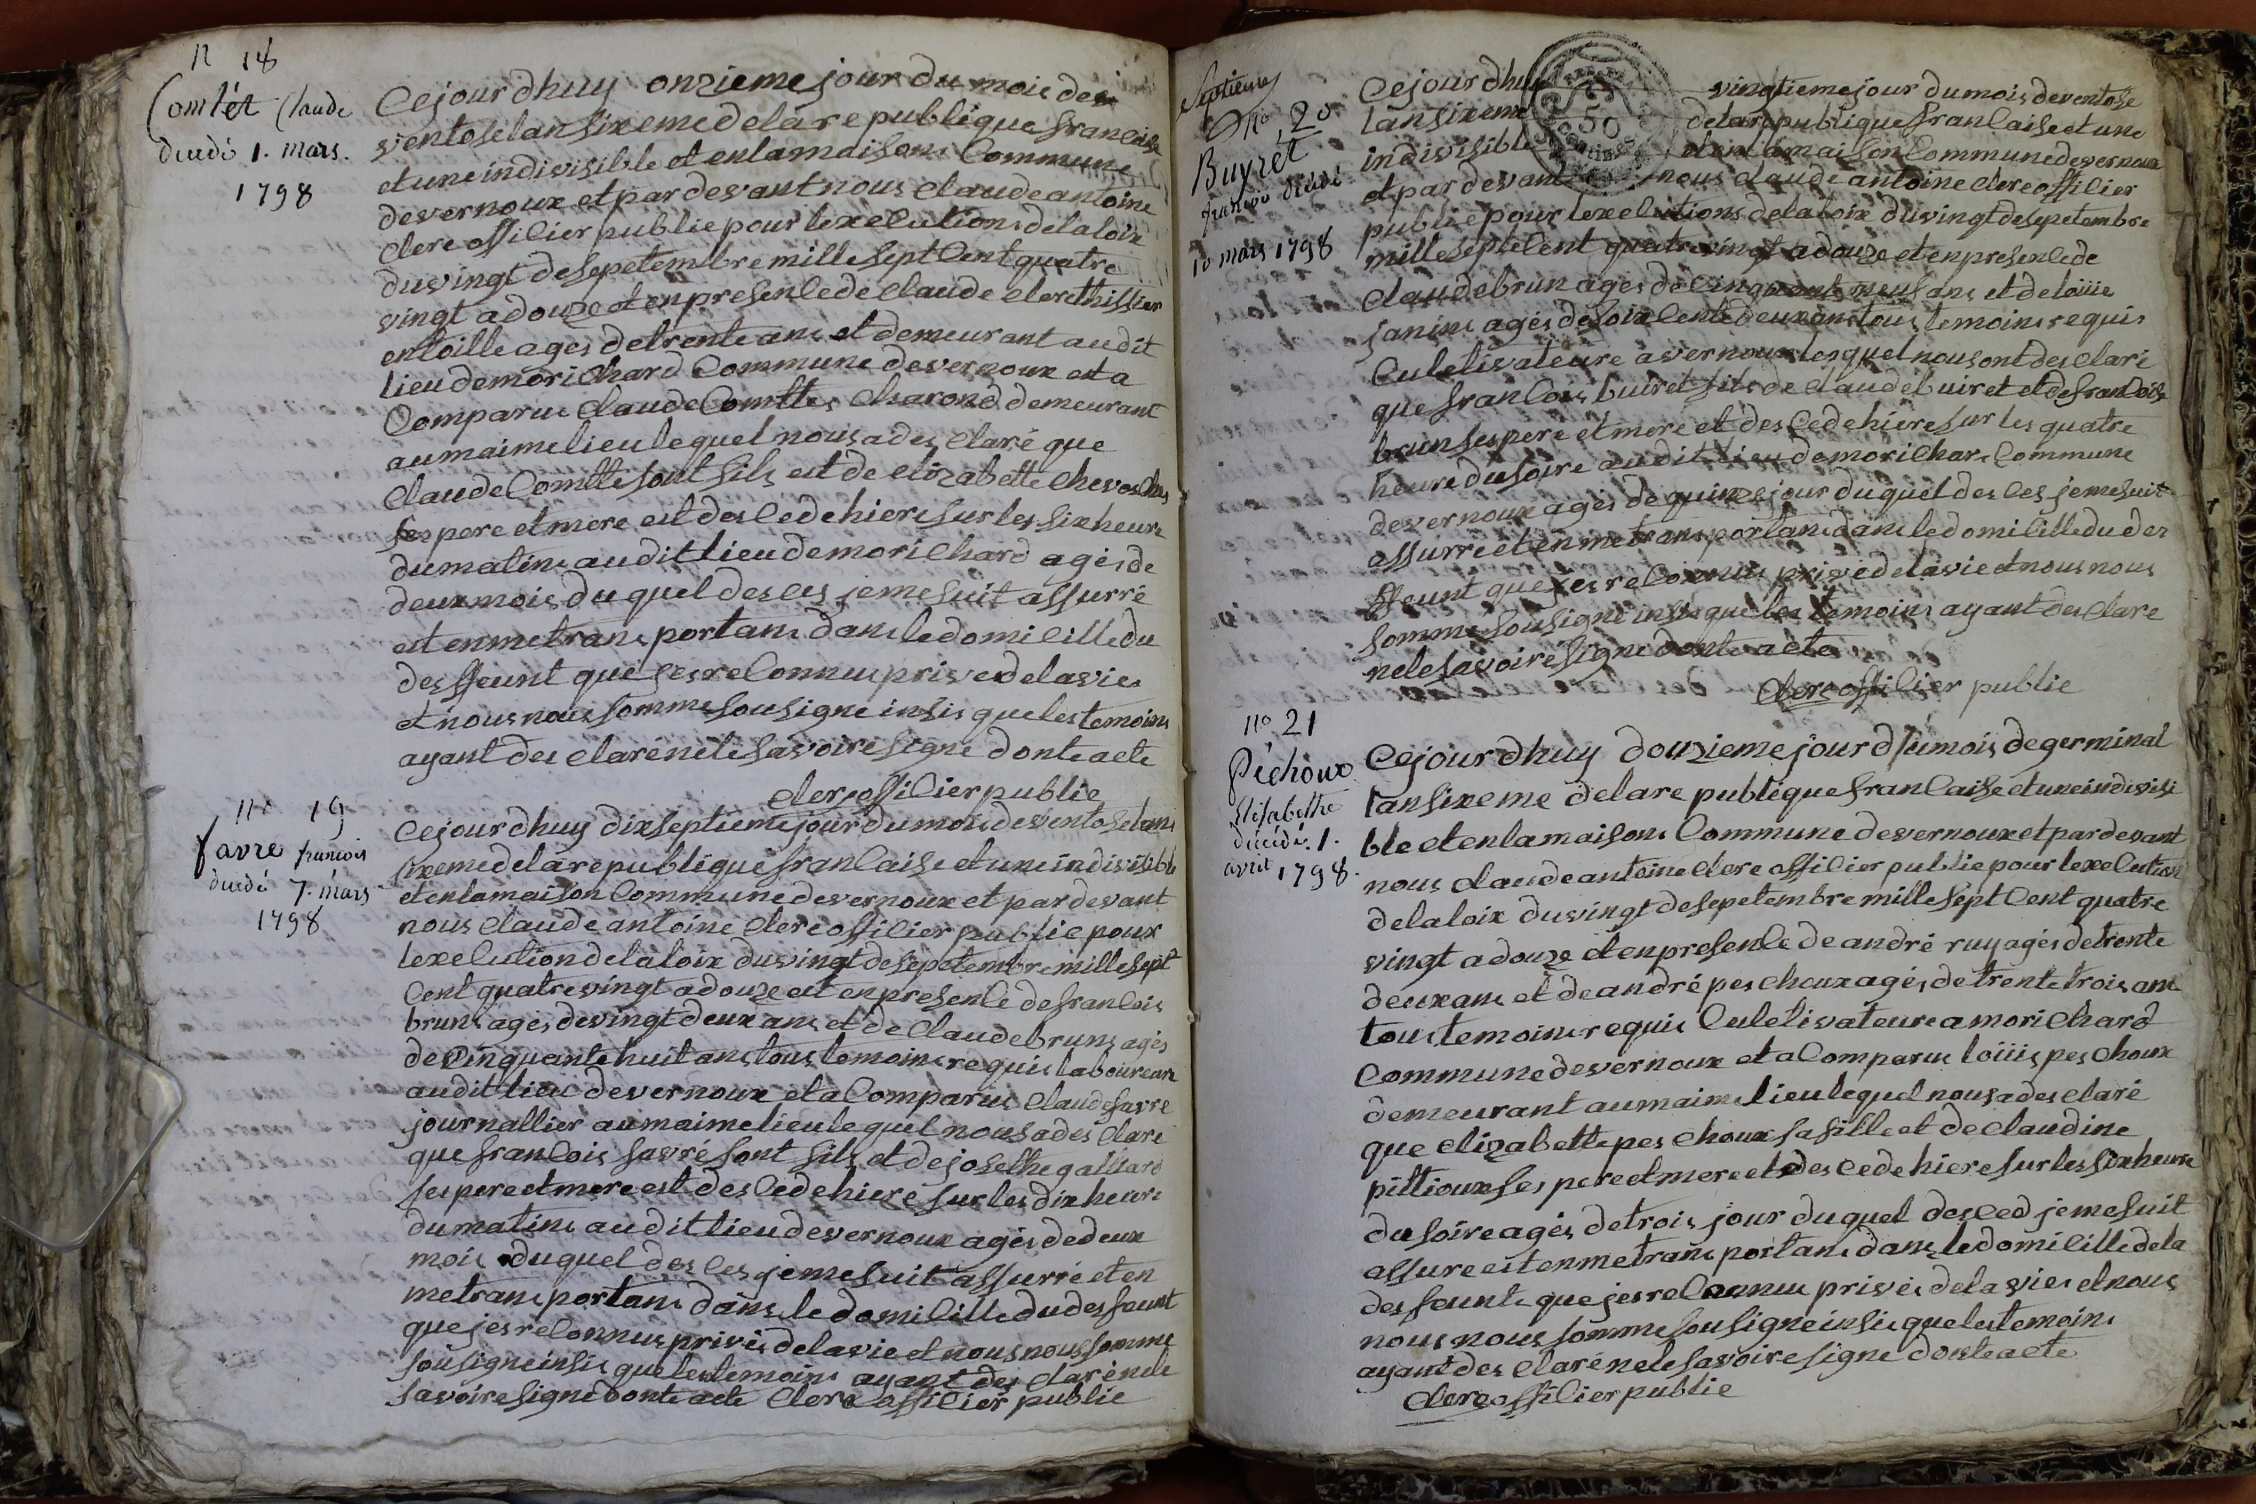 n 18
Comtét Claude
décédé 1. mars.
1798
Cejourdhuy onzieme jour du mois de
ventose lan sixeme de la republique francaise
et une indivisible et en la maison Commune
de vernoux et par devant nous claude antoine
clerc offilier publie pour lexelution de la loix
du vingt desepetembre mille sept Cent quatre
vingt adouze et en presenle de claude clerc thissier
en toille ages de trente ans et demeurant au dit
lieu de morichard Commune de vernoux est a
Comparus claude Comtte Charond demeurant
au maime lieu lequel nous a des claré que
claude Comtte sont fils est de elizabette
ses pere et mere est des Cede hiere sur les six heure
du matin au dit lieu de morichard ages de
deux mois du quel des ces je me suit assurré
est en me trans portans dans le domicille du
des ffeunt que jes reconnus prives de la vie
et nous nous somme sousigne insis que les temoins
ayant des claré nele savoire signé donte acte
clerc offilier publie
n° 19
favre francois
décédé 7. mars
1798
Cejourdhuy dix septieme jour du mois de ventose lans
sixeme de la republique francaise et une indivisible
et en la maison Commune de vernoux et par devant
nous claude antoine clerc offilier publie pour
lexelution de la loix du vingt de sepetembre mille sept
Cent quatre vingt adouze est en presenle de francois
bruns ages de vingt deux ans et de Claude bruns agés
de Cinquante huit ans tous temoins requis laboureure
au dit lieu de vernoux et a Comparus claude favre
journallier au maime lieu le quel nous a des clare
que francois favré sont fils et de josethe galliard
ses pere et mere est des Cede hiere sur les dix heure
du matins au dit lieu de vernoux agés de deux
mois duquel des ces je me suit assurré et en
me trans portans dans le domicille du des feunt
que jes reconnus privés de la vie et nous nous somme
sousigne insis que les temoins ayant des clarénele
savoire signé donte acte clerc offilier publie
Septieme
n° 20
Buyret
francois décédé
10 mars 1798
Cejourdhuy vingtieme jour du mois de ventose
lan sixeme de la republique francaise et une
indivisible et en la maison Commune de vernoux
et par devant nous claude antoine clerc offilier
publie pour lexelutions de la loix du vingt desepetembre
mille sept Cent quatre vingt adouze et en presenle de
Claude brun agés de Cinquante neuf ans et de loiiis
janins agés de soixcente deux ans tous temoins requis
Culetivateure a vernoux lesquel nous ont des claré
que francois buiret fils de claude buiret et de francoise
brun ses pere et mere et des Cede hiere sur les quatre
heure du soire au dit lieu de morichar Commune
de vernoux agés de quinze jour duquel des ces je me suit
assurré et en me trans portans dans le domicille du des
ffeunt que jes reconnus prive de la vie et nous nous
somme sousigné insis que les temoins ayant des clare
nele savoire signé donte acte
clerc offilier publie
n° 21
Péchoux
Elisabethe
décédée 1.
avril 1798.
Cejourdhuy douzieme jour du mois de germinal
lan sixeme de la republique francaise et une indivisi
ble et en la maison Commune de vernoux et par devant
nous claude antoine clerc offilier publie pour lexelution
de la loix du vingt desepetembre mille sept Cent quatre
vingt adouze et en presenle de andré ruy agés de trente
deux ans et de andré pes choux agés de trente trois ans
tous temoins requis Culetivateure a morichard
Commune de vernoux et a Comparus loiiis pes choux
demeurant au maime lieu lequel nous a des claré
que elizabette pes choux sa fille et de claudine
pittioux ses pere et mere et des cede hiere sur les six heure
du soire agés de trois jour duquel des ced je me suit
assure est en me trans portans dans le domicille de la
des feunte que jes reconnu privés de la vie et nous
nous nous somme sousigne insis que les temoins
ayant des claré nele savoire signé donte acte
clerc offilier publie